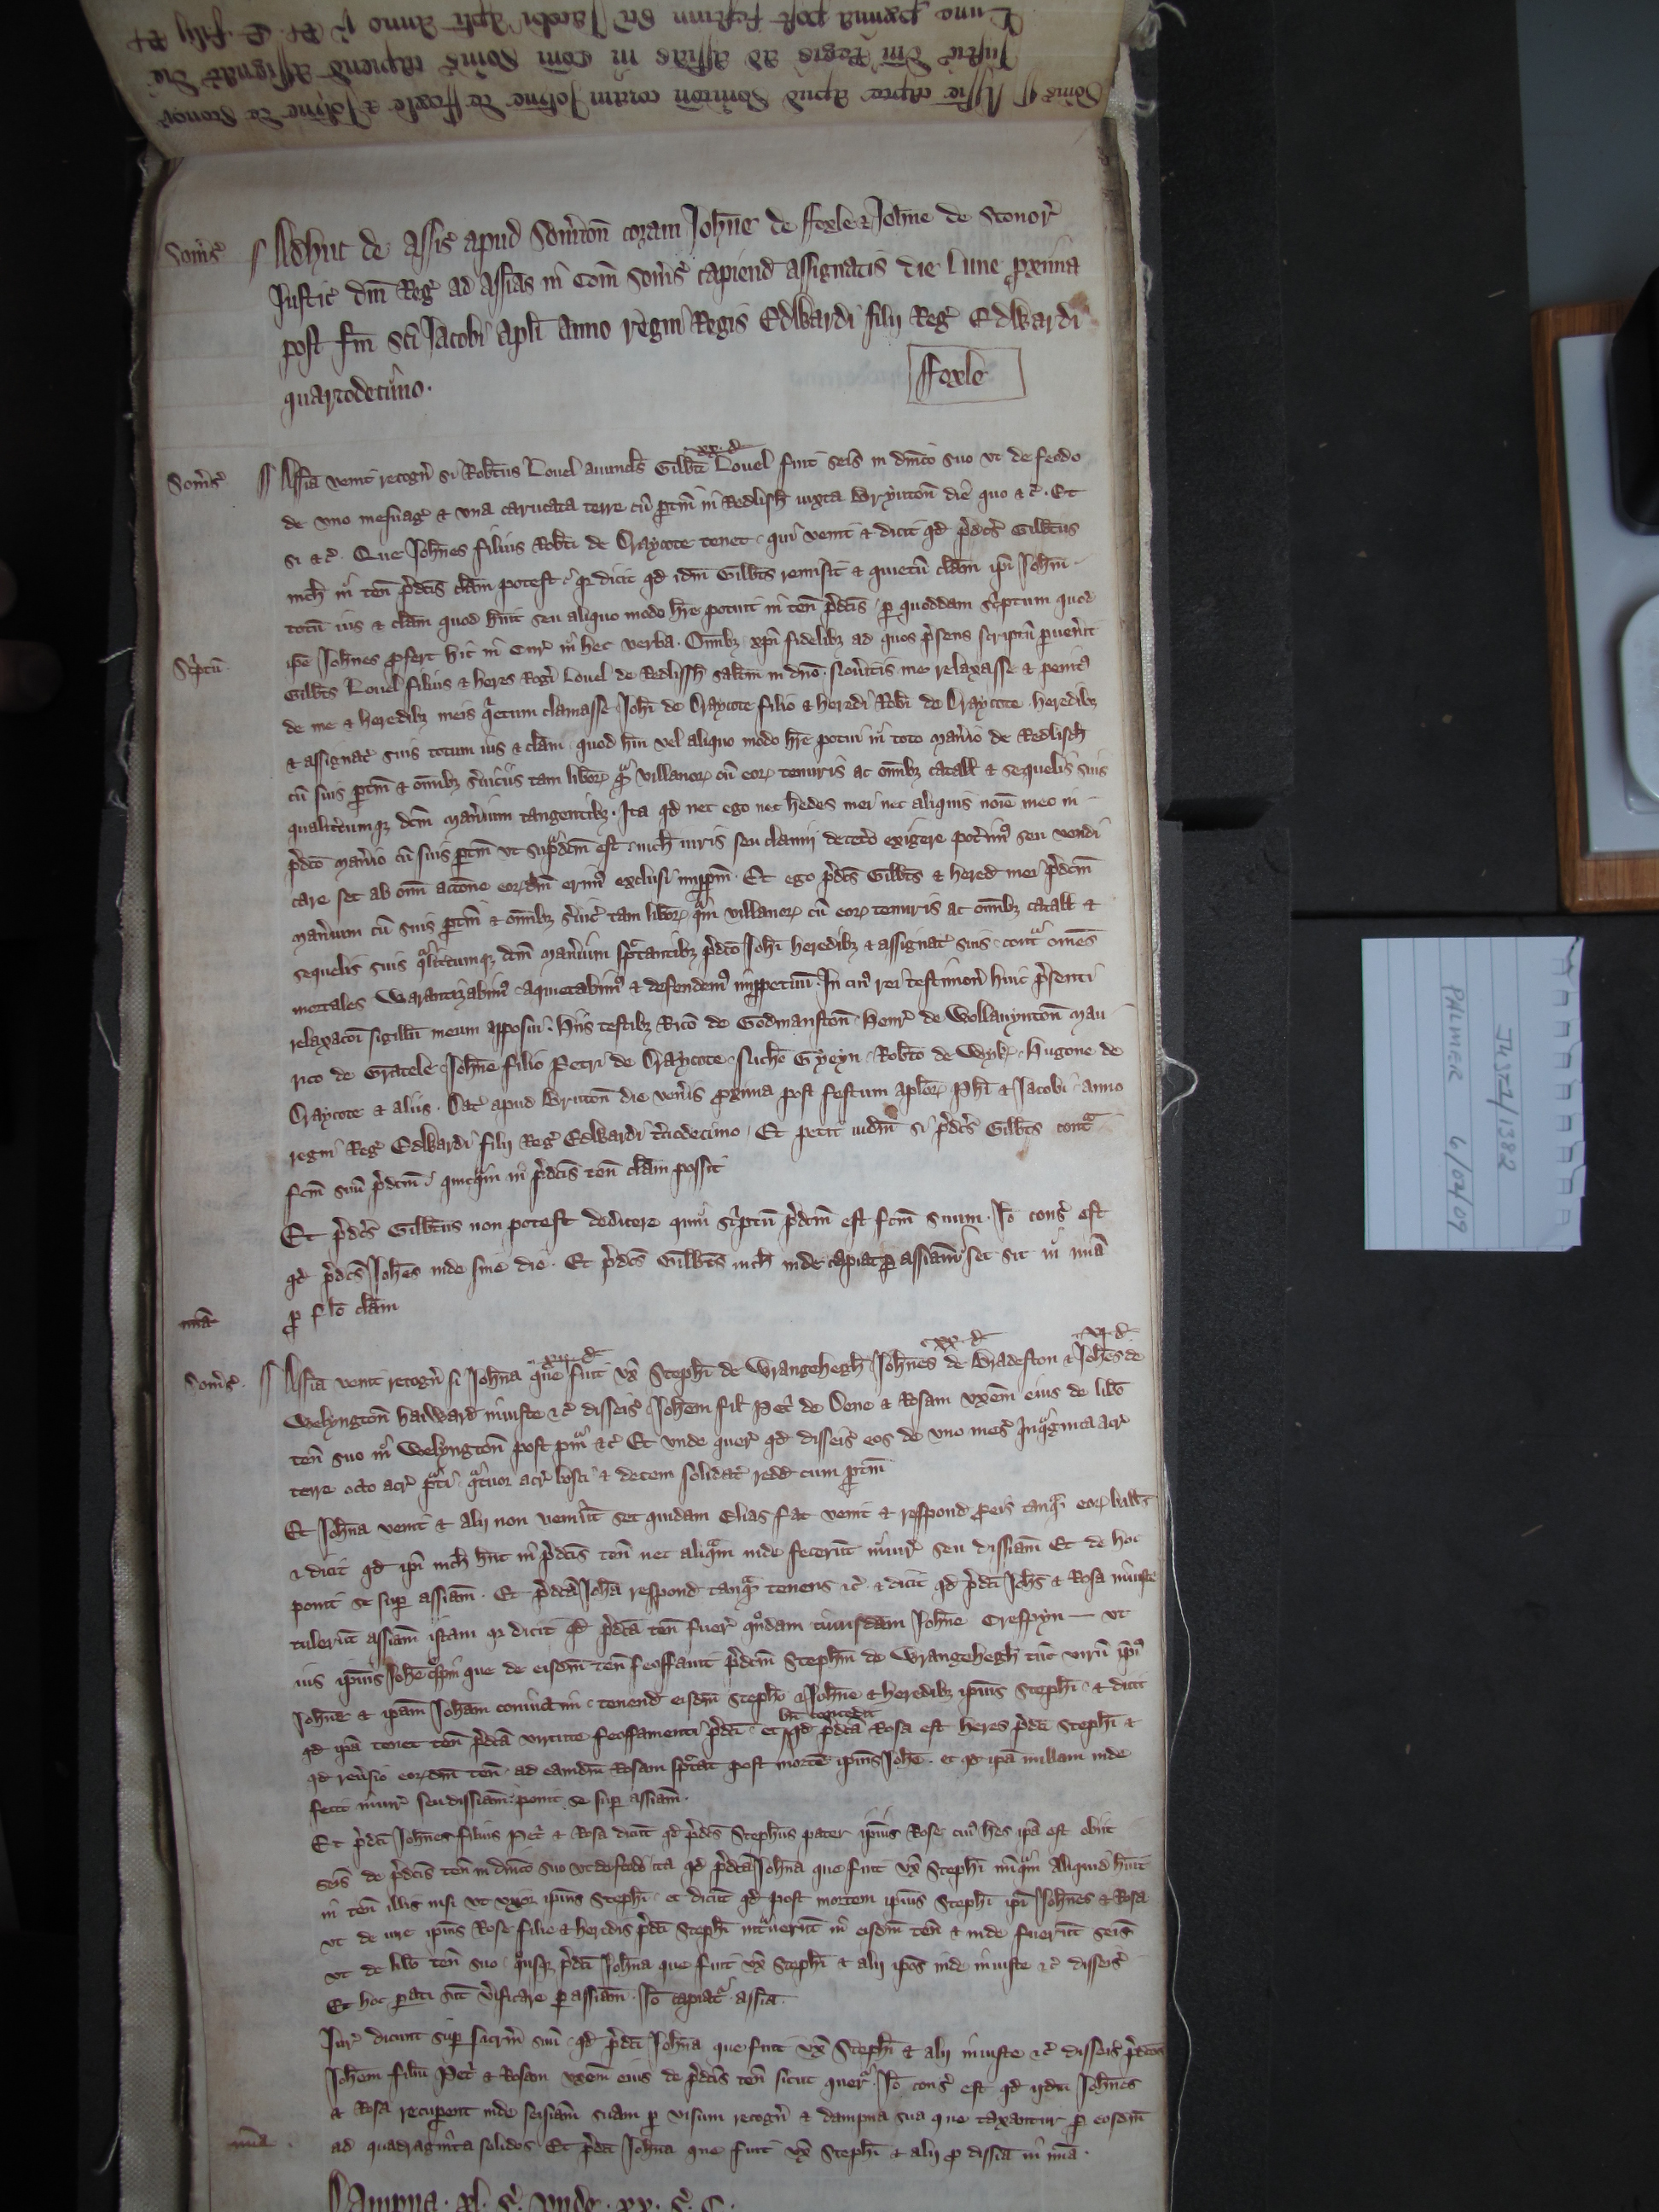 Som̃s̃ Adhuc de assis̃ apud Som̃ton̄ coram Joh̄ne de ffoxle & Joh̄ne de Stonor̃
Justic̃ dn̄i Reg̃ ad assīas in Com̃ Som̃s̃ capiend̃ assignatis die Lune p̱xima
post fm̃ sc̄i Jacobi apl̄i Anno regni Regis Edwardi filij Reg̃ Edwardi
quartodecimo. ffoxle
xx. d̃
Som̃s̃ Assīa venit recogn̄ si Rob̄tus Louel auuncl̄s Gilb̄ti Louel fuit seis̄ in dn̄ico suo vt de feodo
de vno mesuag̃ & vna carucata terre cū ptin̄ in Redlisħ iuxta Bryuton̄ die quo &c̃. Et
si &c̃. Que Joh̄nes filius Rob̄ti de Draycote tenet. qui venit & dicit qd̄ p̄dc̄s Gilb̄tus
nich̄ iur̃ in ten̄ p̄dc̄is clam̄ potest. q̃ dicit qd̄ idm̄ Gilb̄ts remisit & quietū clam̄ ip̄i Joh̄i
totū ius & clam̄ quod h̄uit seu aliquo modo h̄re potuit in ten̄ p̄dc̄is p quoddam sc̃ptum quod
Sc̃ptū ip̄e Joh̄nes p̱fert hic in Cur̃ in hec verba. Om̄ibȝ xp̄i fidelibȝ ad quos p̄sens scriptū puen̄it
Gilb̄ts Louel filius & heres Rog̃i Louel de Redlissħ sal̄tm in dn̄o. Noūitis me relaxasse & penit᾿
de me & heredibȝ meis q̃etum clamasse Joh̄i de Draycote filio & heredi Rob̄i de Draycote heredibȝ
& assignat̃ suis totum ius & clam̄ quod h̄ui vel aliquo modo h̄re potui in toto man̄io de Redlisħ
cū suis ptin̄ & om̄ibȝ s̄uiciis tam lib̄oꝝ q̃ᵐ villanoꝝ cū eoꝝ tenuris ac om̄ibȝ catall̄ & sequelis suis
qualit̄cumqȝ dcm̄ man̄ium tangentibȝ. Ita qd̄ nec ego nec h̄edes mei nec aliquis noīe meo in
p̄dc̄o man̄io cū suis ptin̄ vt sup̃dcm̄ est nich̄ iuris seu clamij decet̄o exigere pot̄im᾿ seu vendi
care set ab om̄i acc̄one eoꝝdm̄ erim᾿ exclusi imppm̄. Et ego p̄dc̄s Gilb̄ts & hered̃ mei p̄dcm̄
man̄ium cū suis ptin̄ & om̄ibȝ s̄uic̃ tam lib̄oꝝ q̃m villanoꝝ cū eoꝝ tenuris ac om̄ibȝ catall̄ &
sequelis suis q̃lit̄cumqȝ dcm̄ man̄ium sp̄tantibȝ p̄dc̄o Joh̄i heredibȝ & assignat̃ suis cont̃ om̄es
mortales Warantizabim᾿ aquietabim᾿ & defendem᾿ imppetuū. In cui᾿ rei testimon̄ huic p̄senti
relaxac̄oi sigillū meum apposui. Hiis testibȝ Ric̄o de Godmanston̄ Henr̃ de Wollauynton̄ Mau
rico de Gratele Joh̄ne filio Petri de Draycote Nich̄o Gyeyn Rob̄to de Wyk̃ Hugone de
Draycote & aliis. Dat̃ apud Bruton̄ die ven̄is p̱xima post festum apl̄oꝝ Ph̄i & Jacobi anno
regni Reg̃ Edwardi filij Reg̃ Edwardi t̄ciodecimo. Et petit iudm̄ si p̄dc̄s Gilb̄ts cont̃
fcm̄ suū p̄dcm̄ quicq̃m in p̄dc̄is ten̄ clam̄ possit
Et p̄dc̄s Gilb̄tus non potest dedicere quin sc̃ptū p̄dcm̄ est fcm̄ suum. Io cons̄ est
qd̄ p̄dc̄s Joh̄es inde sine die. Et p̄dc̄s Gilb̄ts nich̄ inde capiat p assīam set sit in mīa
mīa p f̄lo clam̄
xx d̃ xx. d̃ vj. d̃
Som̃s̃ Assīa venit recogn̄ si Joh̄na que fuit vx̄ Steph̄i de Wrangehegħ Joh̄nes de Bradeston & Joh̄es de
Welyngton̄ hauward̃ iniuste &c̃ disseis̄ Joh̄em fil̄ Pet̃ de Dene & Rosam vxem̄ eius de lib̄o
ten̄ suo in Welyngton̄ post pm̄ &c̃ Et vnde quer̃ qd̄ disseis̄ eos de vno mes̄ Quinq̃ginta acr̃
terre octo acr̃ p̃ti q̃tuor acr̃ bosci & decem solidat̃ redd̃ cum ptin̄
Et Joh̄na venit & alij non ven̄nt set quidam Elias Fac̃ venit & respond̃ p eis tanq̃ eoꝝ ball̄s
& dicit qd̄ ip̄i nich̄ h̄nt in p̄dc̄is ten̄ nec aliq̃m inde fecerūt iniur̃ seu diss̄iam Et de hoc
ponit se sup assīam. Et p̄dc̄a Joh̄a respond̃ tanq̃ tenens &c̃ & dicit qd̄ p̄dc̄i Joh̄s & Rosa iniuste
tulerūt assīam istam q̃ dicit qd̄ p̄dc̄a ten̄ fuer̃ q̊ndam cuiusdam Joh̄ne Crespyn — vt
ius ip̄ius Joh̄e que de eisdm̄ ten̄ feoffauit p̄dcm̄ Steph̄m de Wrangehegħ tūc virū ip̄i᾿
Joh̄ne & ip̄am Joh̄am coniūctim tenend̃ eisdm̄ Steph̄o & Joh̄ne & heredibȝ ip̄ius Steph̄i & dicit
bn̄ concedit
qd̄ ip̄a tenet ten̄ p̄dc̄a virtute feoffamenti p̄dc̄i et qd̄ p̄dc̄a Rosa est heres p̄dc̄i Steph̄i &
qd̄ reūsio eoꝝdm̄ ten̄ ad eamdm̄ Rosam sp̄tat post mortē ip̄ius Joh̄e. et qd̄ ip̄a nullam inde
fecit iniur̃ seu diss̄iam ponit se sup assīam.
Et p̄dc̄i Joh̄nes filius Pet̃ & Rosa dicūt qd̄ p̄dc̄s Steph̄us pater ip̄ius Rose cui᾿ h̄es ip̄a est obiit
seis̄ de p̄dc̄is ten̄ in dn̄ico suo vt de feodo ita qd̄ p̄dc̄a Joh̄na que fuit vx̄ Steph̄i nūq̃m aliquid h̄uit
in ten̄ illis nisi vt vxor ip̄ius Steph̄i et dicūt qd̄ post mortem ip̄ius Steph̄i ip̄i Joh̄nes & Rosa
vt de iure ip̄ius Rose filie & heredis p̄dc̄i Steph̄i int̃uerūt in eisdm̄ ten̄ & inde fuerūt seis̄
vt de lib̄o ten̄ suo q̊usqȝ p̄dc̄a Joh̄na que fuit vx̄ Steph̄i & alij ip̄os inde iniuste &c̃ disseis̄
Et hoc pati sūt v̄ificare p assīam. Io capiat̃ assīa.
Jur̃ dicunt sup sacr̄m suū qd̄ p̄dc̄a Joh̄na que fuit vx̄ Steph̄i & alij iniuste &c̃ disseis̄ p̄dc̄os
Joh̄em filiū Pet̃ & Rosam vxem̄ eius de p̄dc̄is ten̄ sicut quer̃. Io cons̄ est qd̄ p̄dc̄i Joh̄nes
& Rosa recuperent inde seisinam suam p visum recogn̄ & dampna sua que taxantur p eosdm̄
mīa ad quadraginta solidos Et p̄dc̄a Joh̄na que fuit vx̄ Steph̄i & alij p̱ diss̄ia in mīa.
Dampna. xl. s̃. vnde. xx. s̃. C.
JUST1/1382
PALMER 6/02/09